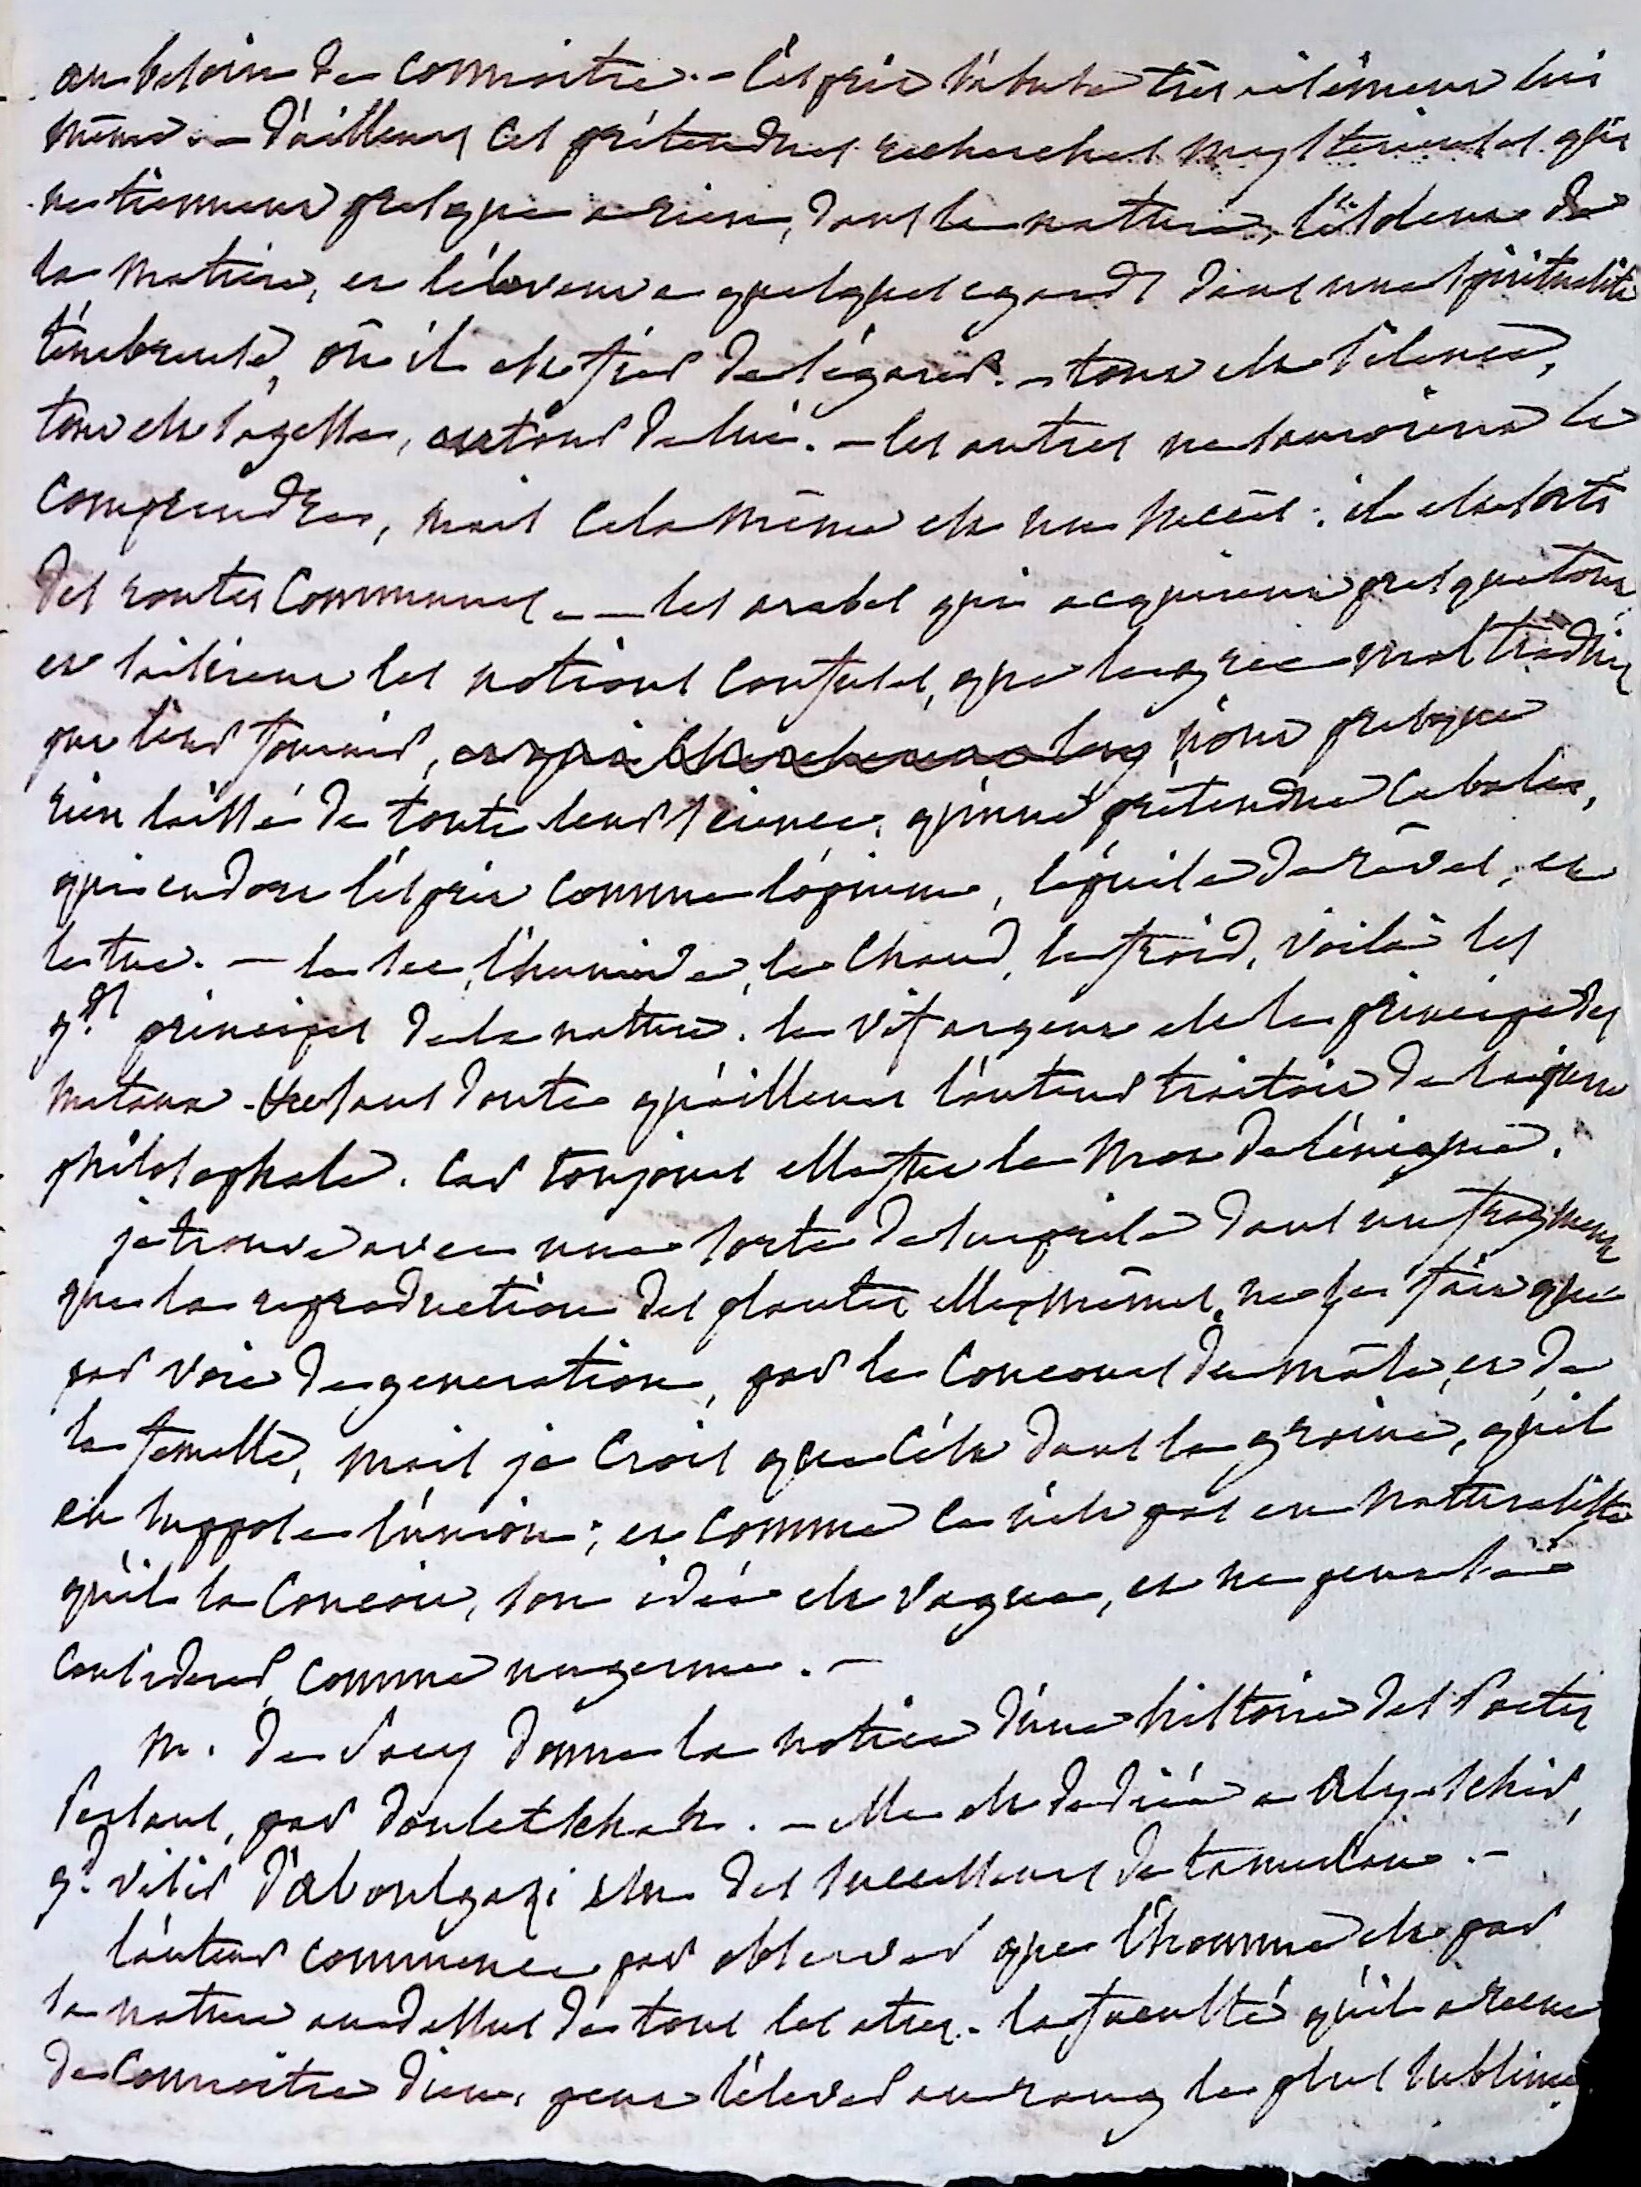 au besoin de connoitre. – l'esprit s'abuse très aisément lui
même. – d'ailleurs ces prétendues recherches mysterieuses qui
ne tiennent presque a rien, dans la nature, l'isolent de
la matiere, et l'élevent a quelques egards dans une spiritualité
ténébreuse, où il est fier de s'égarer. – tout est silence,
tout est sagesse, autour de lui. – les autres ne sauroient le
comprendre, mais cela même est un succès ; il est sorti
des routes communes. – – les arabes qui acquirent presque tout
et saisirent les notions confuses, que le grec mal traduit
put leur fournir, n'ont presque
rien laissé de toute leur science, qu'une prétendue cabale,
qui endort l'esprit comme l'opium, l'épuise de rêves, et
le tue. – le sec, l'humide, le chaud, le froid, voilà les
gds principes de la nature. le vif argent est le principe des
metaux. sans doute qu'ailleurs l'auteur traitoit de la pierre
philosophale. car toujours elle fut le mot de l'énigme.
je trouve avec une sorte de surprise dans un fragment
que la reproduction des plantes elles mêmes, ne se fait que
par voie de generation, par le concours du mâle, et de
la femelle, mais je crois que c'est dans la graine, qu'il
en suppose l'union ; et comme ce n'est pas en naturaliste
qu'il la conçoit, son idée est vague, et ne peut se
considerer, comme un germe. –
m. de Sacy donne la notice d'une histoire des Poetes
Persans, par Douletschah. – elle est dediée a Aly-schir,
gd visir d'Aboulgazi un des successeurs de tamerlan. –
l'auteur commence par observer que l'homme est par
sa nature au dessus de tous les etres. la faculté qu'il a recue
de connoitre dieu, peut l'élever au rang le plus sublime